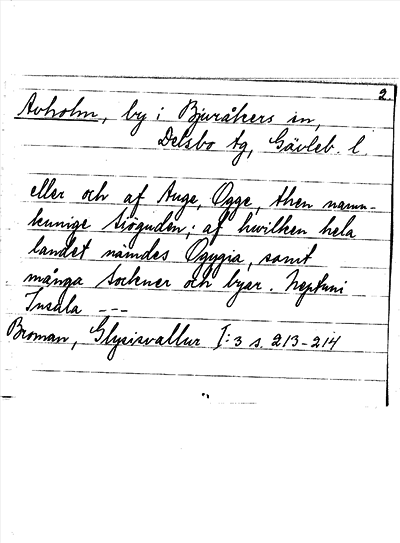 2.
Avholm, by i Bjuråkers sn,
Delsbo tg, Gävleb. l.
eller och af Auge, Ogge, then namn-
kunnige siöguden; af hwilken hela
landet nämdes Ogygia, samt
många socknar och byar. Neptuni
Insula ---
Broman, Glysisvallur I:3 s. 213-214